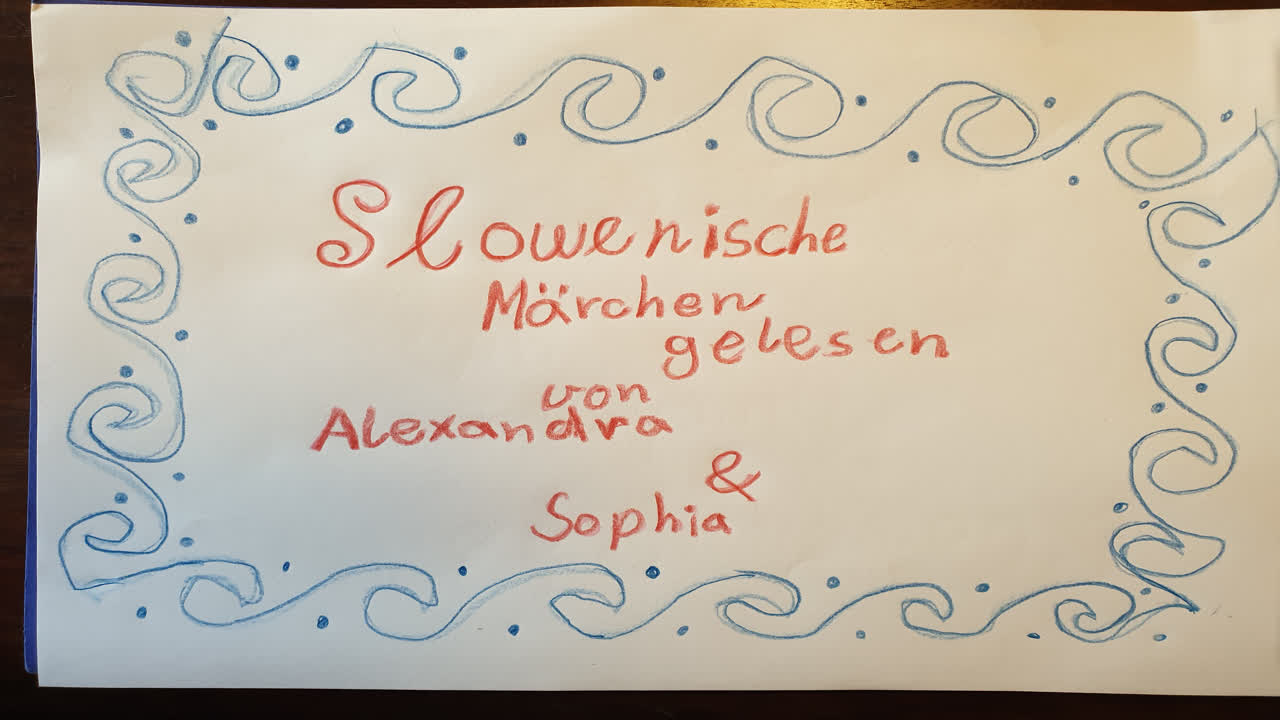 Slowenische
Märchen
gelesen
von
Alexandra
&
Sophia